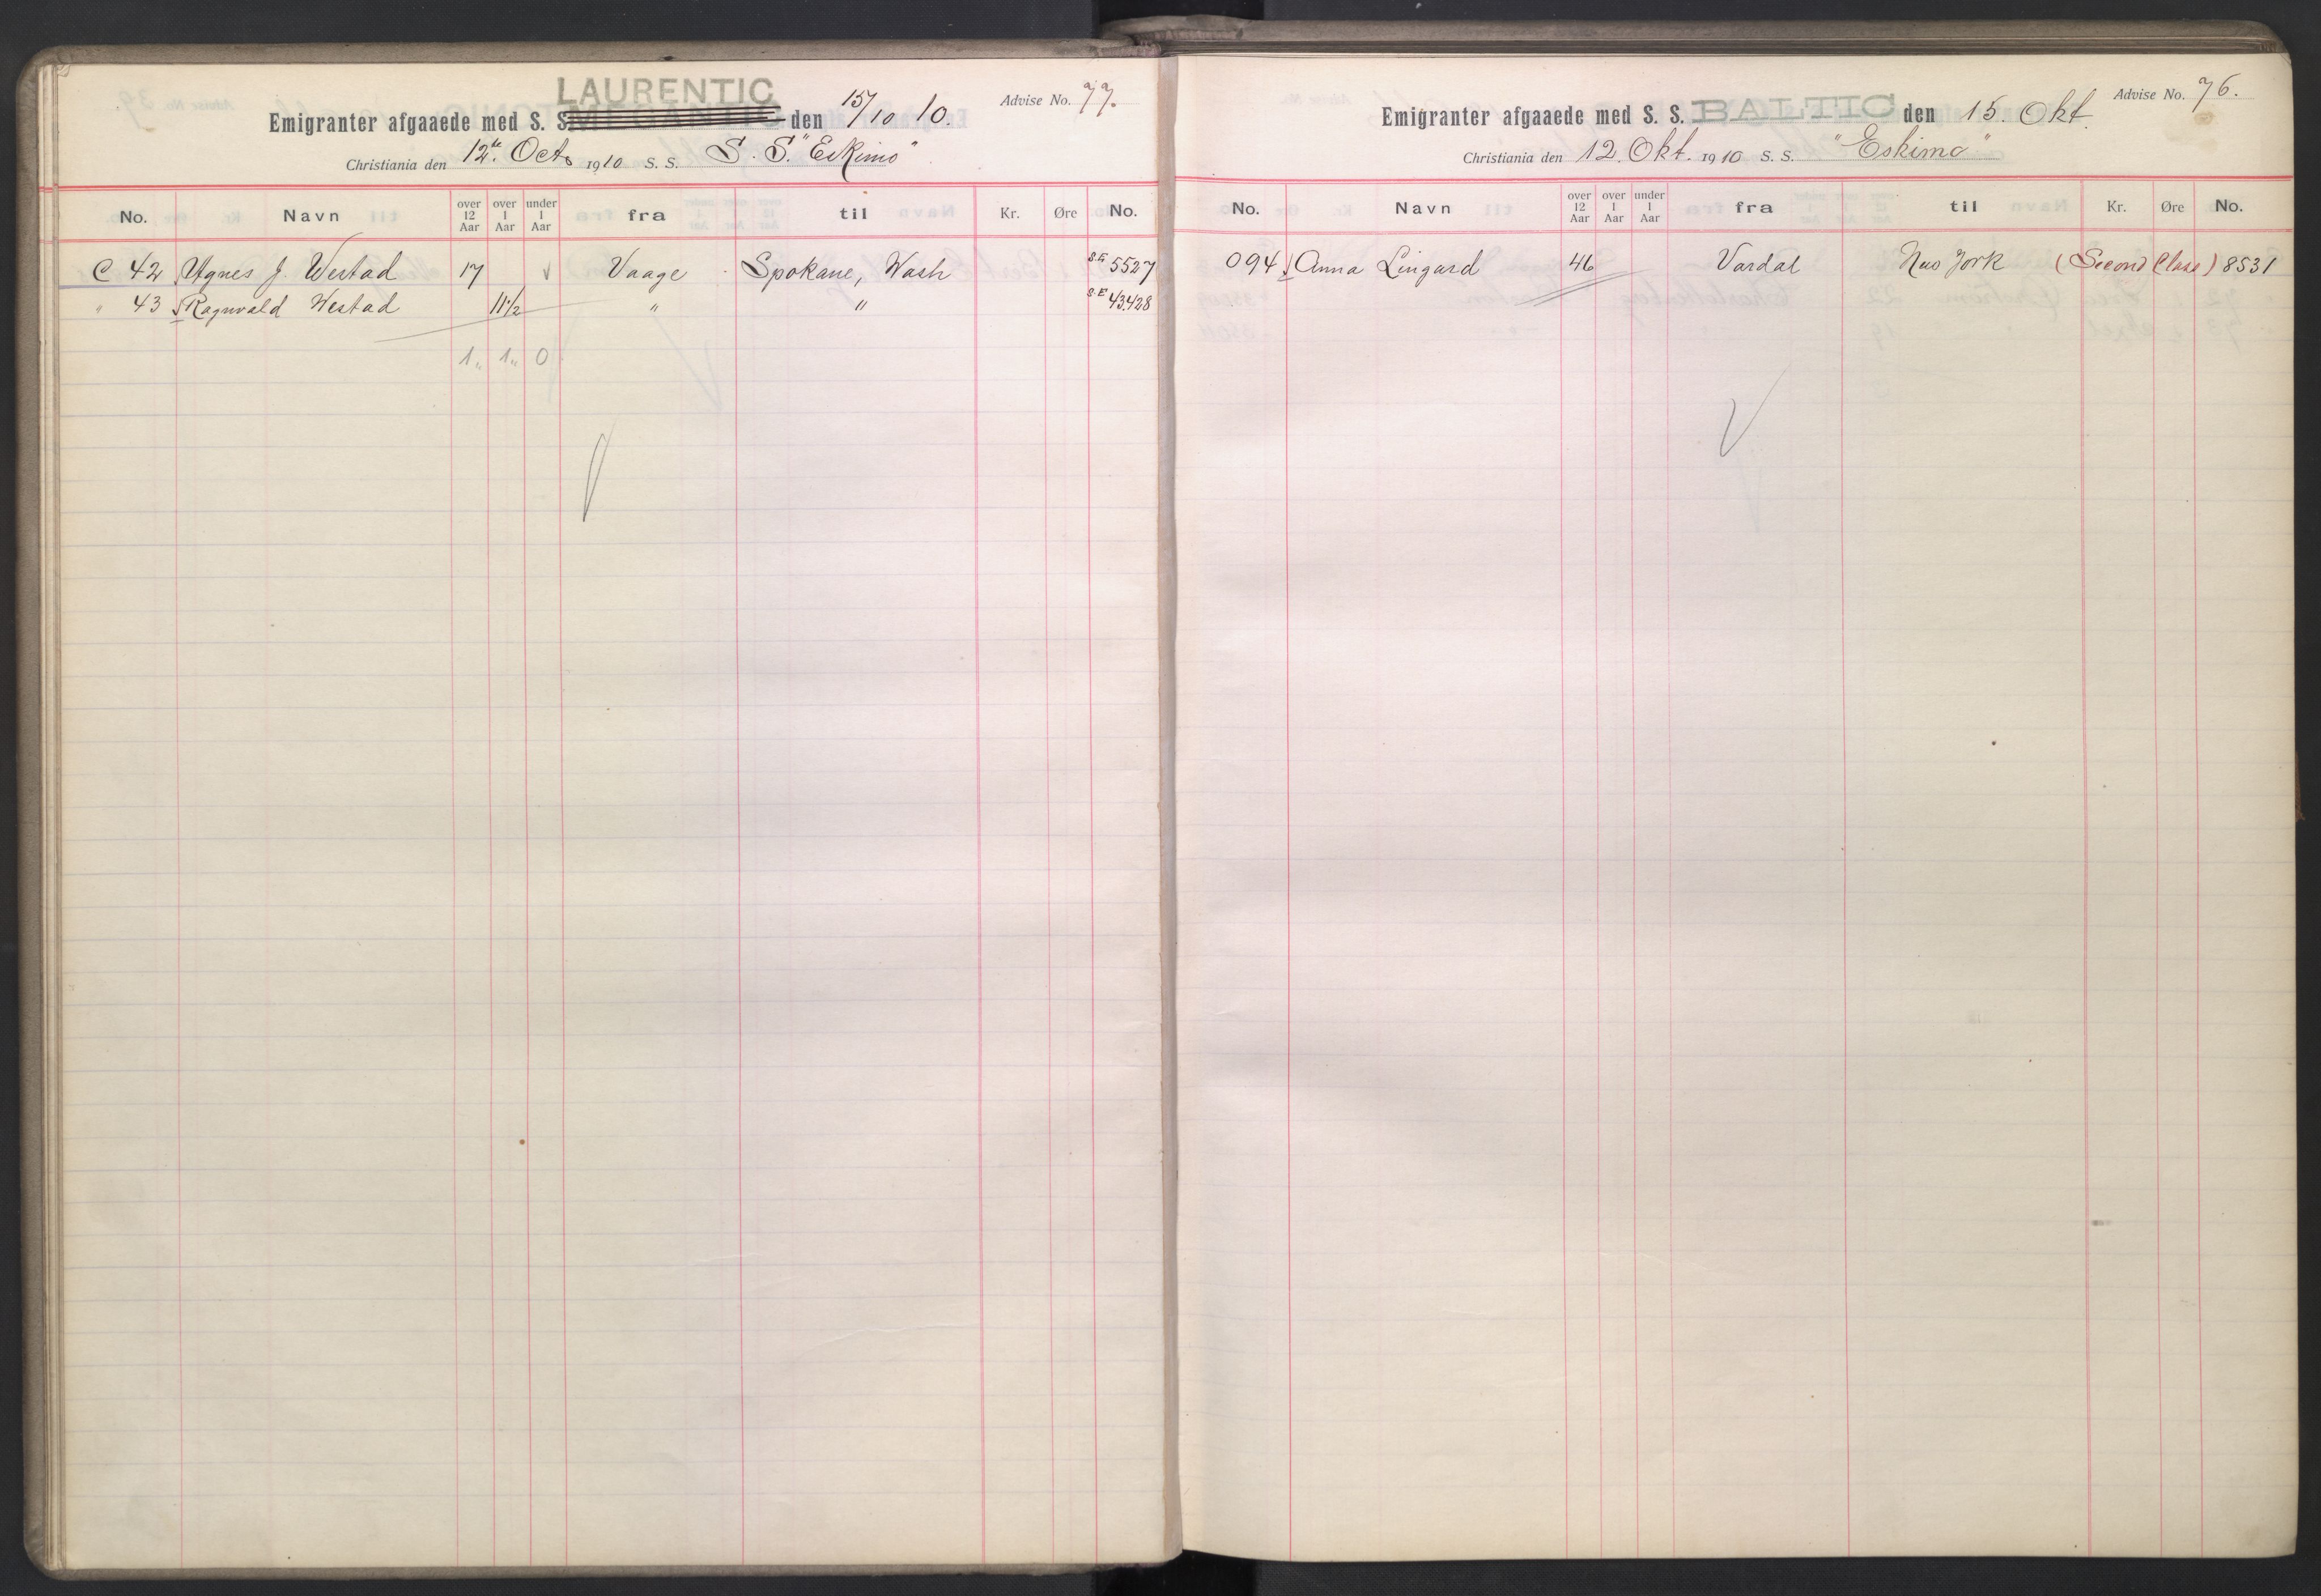 LAURENTIC
Emigranter afgaaede med S. S. MEGANTIC den 15/10 10. Advise No. 77.
Christiania den 12te Octo 1910 S. S. S. S. "Eskimo"
No. Navn over 12 Aar over 1 Aar under 1 Aar fra til Kr. Øre No.
C 42 Agnes J. Westad 17 √ Vaage Spokane, Wash S.E 5527
" 43 Ragnvald Westad 11 1/2 " " S.E 43428
1 " 1 " 0
Emigranter afgaaede med S. S. BALTIC den 15. Okt. Advise No. 76.
Christiania den 12. Okt. 1910 S. S. "Eskimo"
No. Navn over 12 Aar over 1 Aar under 1 Aar fra til Kr. Øre No.
094 Anna Lingard 46 Vardal New York (Second Class) 8531